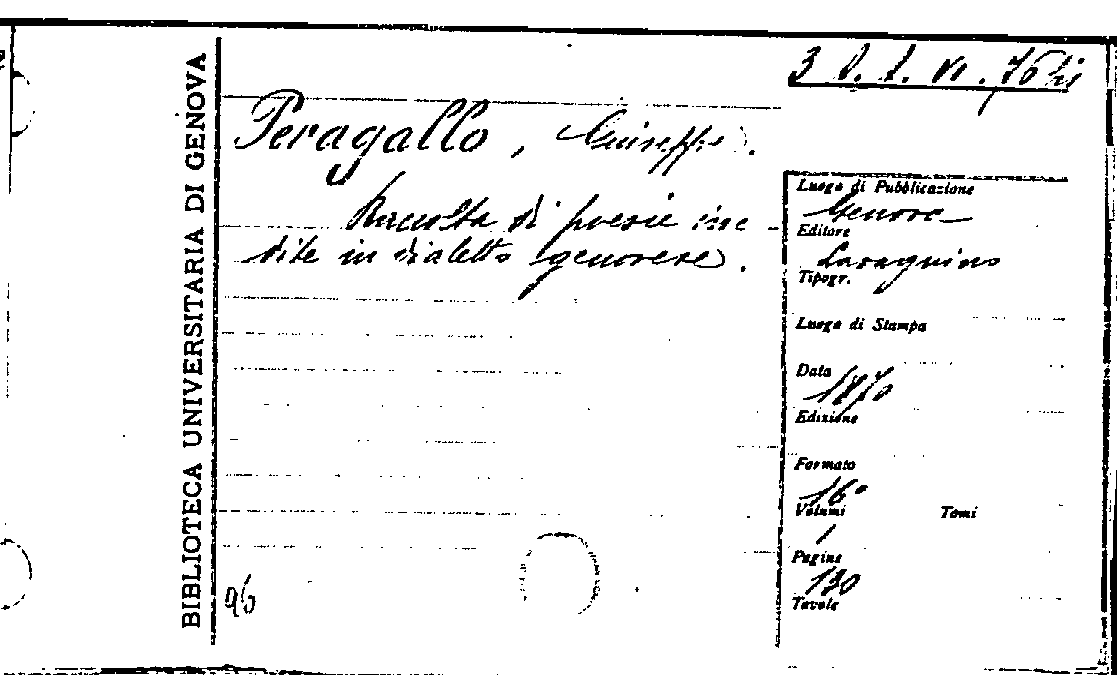 BIBLIOTECA UNIVERSITARIA DI GENOVA
Peragallo, Giuseppe.
Raccolta di poesie ine-
dite in dialetto genovese.
96
Luogo di Pubblicazione
Genova
Editore
Tipogr.
Luogo di Stampa
Data
1870
Edizione
Formato
16°
Volumi Tomi
1
Pagine
130
Tavole